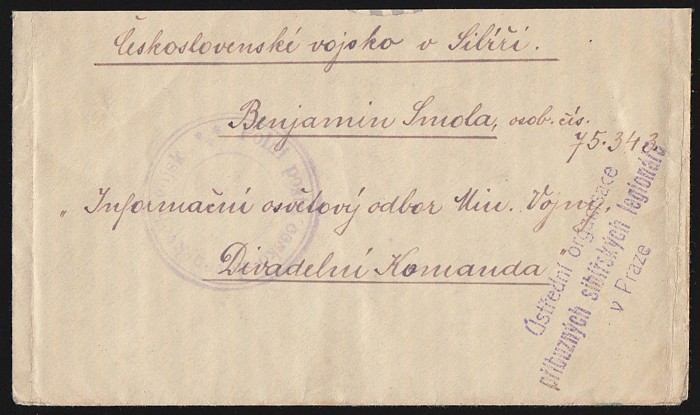 Československé vojsko v Sibíři.
Benjamin Smola, osob. čís.
75.343.
„Informační osvětový odbor Min. Vojny.
Divadelní Komanda"
Ústřední organisace
příbuzných sibiřských legionářů
v Praze
Polní poš